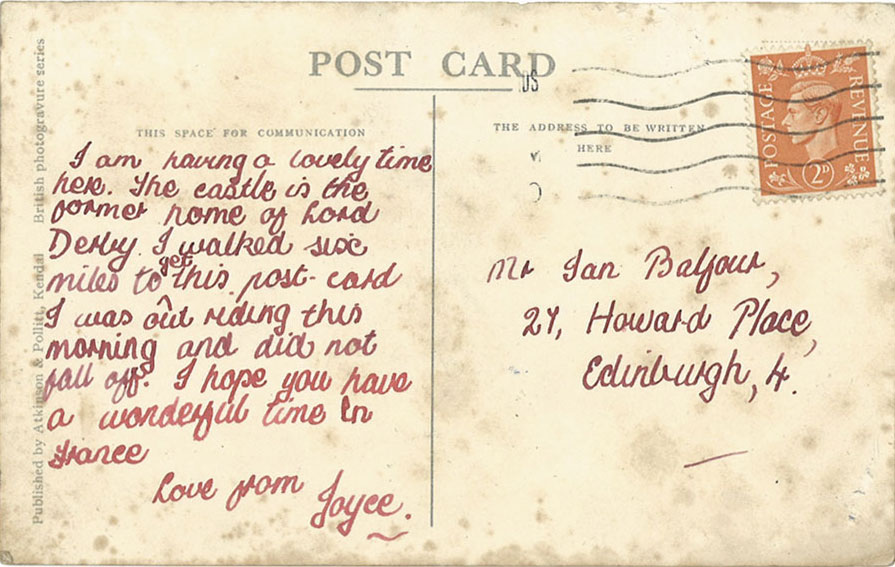 POST CARD
US
THIS SPACE FOR COMMUNICATION
THE ADDRESS TO BE WRITTEN
HERE
POSTAGE
REVENUE
2D
I am having a lovely time
here. The castle is the
former home of Lord
Derby I walked six
miles to get this post-card
I was out riding this
morning and did not
fall off. I hope you have
a wonderful time in
France
Love from
Joyce.
Mr Ian Balfour,
27, Howard Place,
Edinburgh, 4.
Published by Atkinson & Pollitt, Kendal British photogravure series